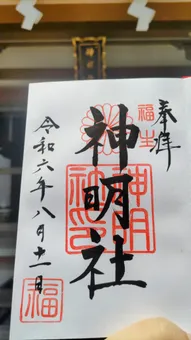 奉拝
福生
神明社
令和六年八月十一日
福